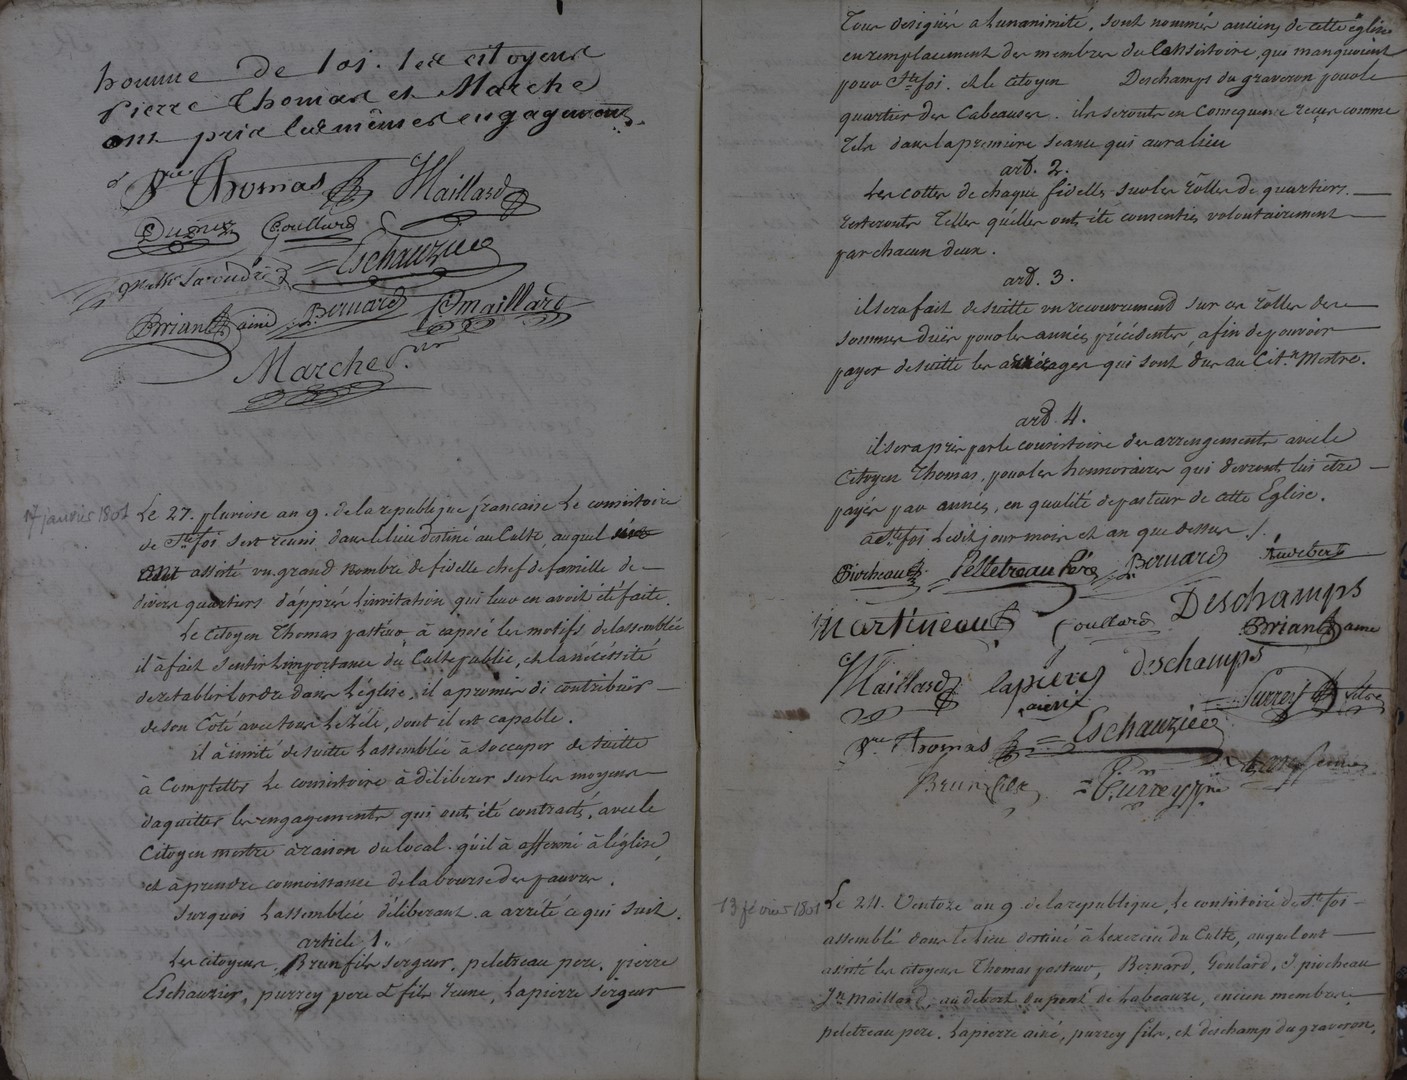 homme de loi. les citoyens
Pierre Thomas et Marche
ont pris les mêmes engagements.
Pre Thomas Maillard
Dumez Goulard
Eschauzier
Briant ainé Bernard Maillard
Marche
17 janvier 1801
Le 27. pluviose an 9. de la republique française Le consistoire
de Ste foi s'est reuni dans le lieu destiné au Culte, auquel
assisté un grand nombre de fidelle chef de famille de
divers quartiers d'apprés linvitation qui leur en avoit été faite.
Le Citoyen Thomas pasteur à exposé les motifs de lassemblée
il à fait sentir limportance du Culte public, et la nécéssité
de retablir lordre dans léglise, il a promis di contribuër
de son Côté avec tous le Zéle, dont il est capable.
il à invité de suitte Lassemblée à s'occuper de suitte
à Completter le consistoire à déliberer sur les moyens
daquitter les engagements qui ont été contractés, avec le
Citoyen mestre à raison du local. qu'il à affermé à léglise,
et à prendre connoissance de la bourse des pauvres.
Surquoi Lassemblée déliberant a arrêté ce qui suit.
article 1er
Les citoyens, Brun fils sergeur, peletreau pere, pierre
Eschauzier, purrey pere & fils Jeune, Lapierre sergeur
Tous designés a Lunanimité, sont nommés anciens de cette église
en remplacement des membres du Consistoire qui manquoient
pour Ste foi. et le citoyen Deschamps du graveron pour le
quartier des Cabeauses. ils seronts en Consequence reçus comme
Tels dans la premiere seance qui aura lieu
art. 2.
Les cottes de chaque fidelle sur les rôlles de quartiers
resteronts Telles qu'elles ont été consenties volontairement
par chacun deux.
art. 3.
il sera fait de suitte un recouvrement sur ces rôlles des
sommes dües pour les années précédentes, afin de pouvoir
payer de suitte les arrérages qui sont dus au Cit.n Mestre.
art. 4.
il sera pris par le consistoire des arrengements avec le
Citoyen Thomas, pour les honnoraires qui devront lui être
payés par année, en qualité de pasteur de cette Eglise.
a Ste foi Ledit jour mois et an que dessus /.
Piocheau Pelletreau Père Bernard
Martineau Goullard Deschamps
Briant ainé
Maillard lapierre deschamps
ainé Purrey
Pre Thomas Eschauzier
Brun fils Purrey
13 février 1801
Le 24. Ventoze an 9 de la republique, Le consistoire de Ste foi
assemblé dans le lieu destiné à lexercice du Culte, auquel ont
assisté les citoyens Thomas pasteur, Bernard, Goulard, J piocheau
Jn Maillard, au debort du pont de Labeauze, encien membres,
peletreau pere, Lapierre ainé, purrey fils, et deschamp du graveron,